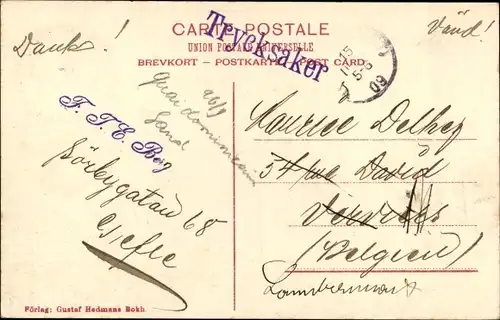 CARTE POSTALE
UNION POSTALE UNIVERSELLE
BREVKORT – POSTKARTE – POST CARD
Trycksaker
Dank!
Vänd!
15
5-6
09
Quai dominicain
Gand
26/9
F. T. E. Bérg
Sörbygatan 68
Gefle
Maurice Delhez
54 rue David
Verviers
(Belgien)
Förlag: Gustaf Hedmans Bokh.